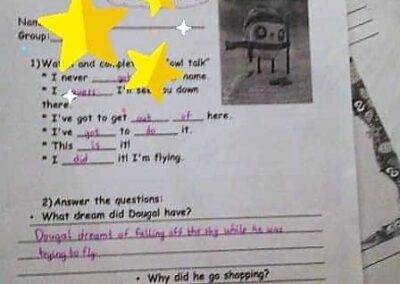 Nam
Group:
1)Wa and comple "owl talk"
* I never got name.
* I I'm see you down
there.
* I've got to get out of here.
* I've got to do it.
* This is it!
* I did it! I'm flying.
2)Answer the questions:
• What dream did Dougal have?
Dougal dreamt of falling off the sky while he was
trying to fly
• Why did he go shopping?